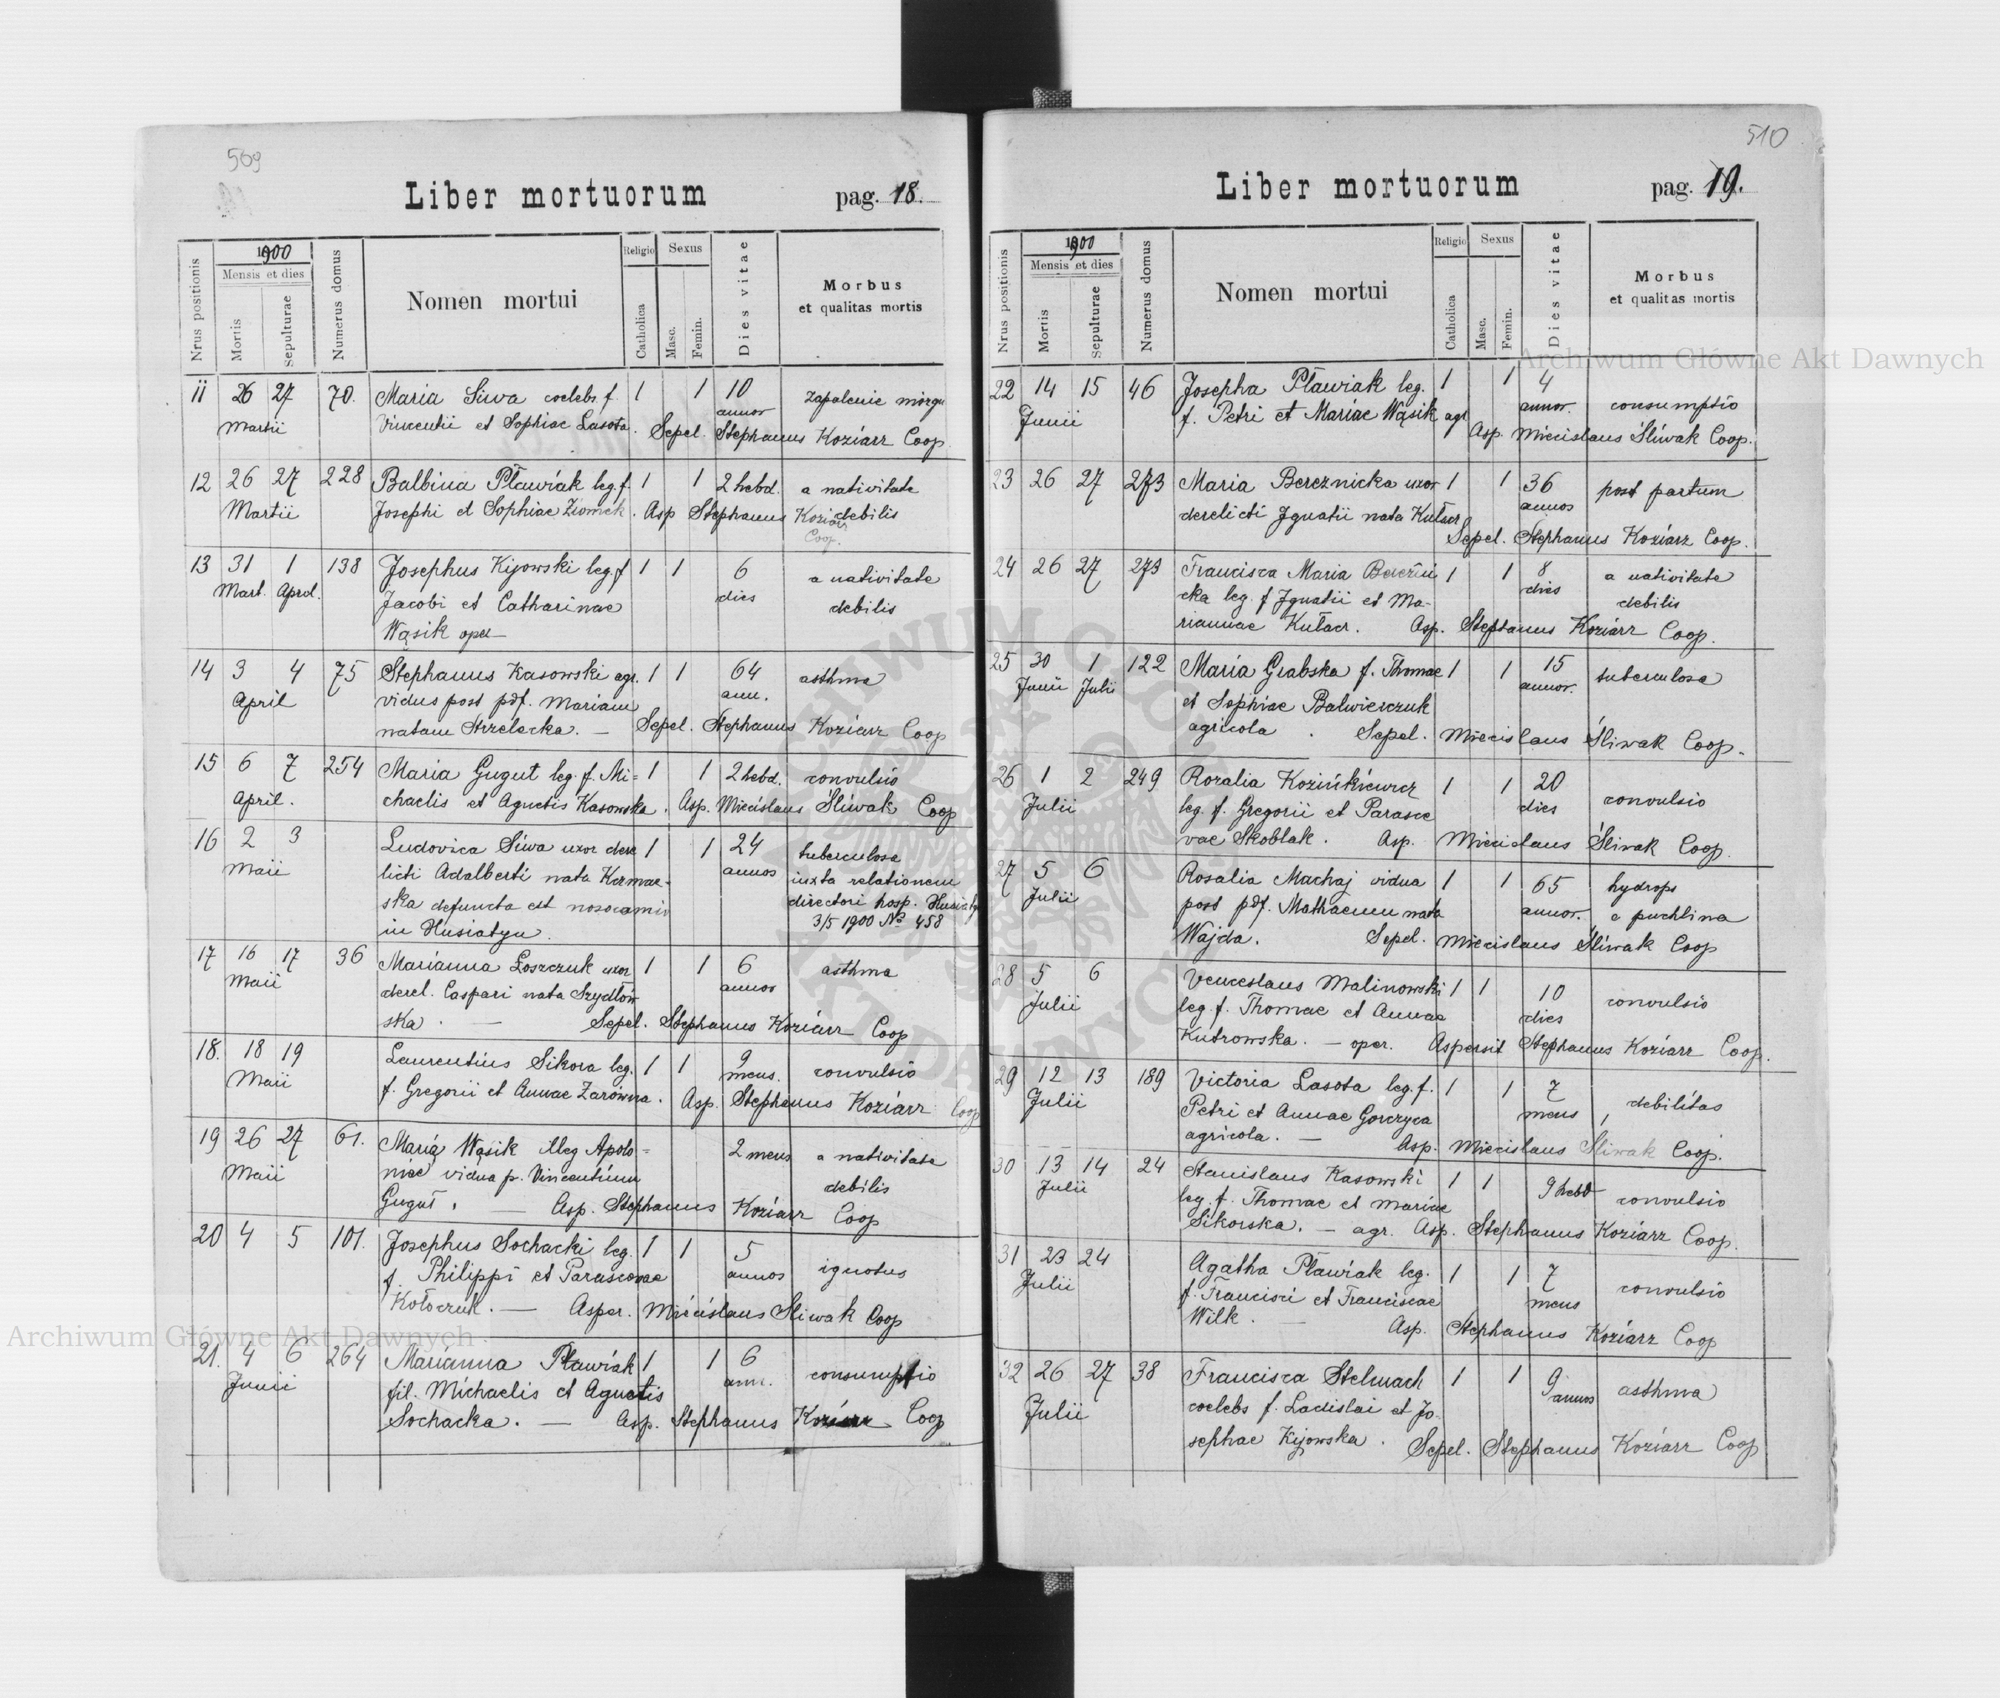 509
Liber mortuorum pag. 18.
Nrus positionis
1900
Mensis et dies
Mortis
sepulturae
Numerus domus
Nomen mortui
Religio
Catholica
Sexus
Masc.
Femin.
Dies vitae
Morbus
et qualitas mortis
11 26 27 70. Maria Siwa coelebs. f. 1 1 10 zapalenie mózgu
Martii Vincentii et Sophiae Lasota. annor
Sepel. Stephanus Koziarz Coop.
12 26 27 228 Balbina Pławiak leg. f. 1 1 2 hebd. a nativitate
Martii Josephi et Sophiae Ziomek. Asp Stephanus Koziarz debilis
Coop.
13 31 1 138 Josephus Kijowski leg. f 1 1 6 a nativitate
Mart. April. Jacobi et Catharinae dies debilis
Wąsik oper
14 3 4 75 Stephanus Kasowski agr. 1 1 64 asthma
April vidus post pdf. Mariam ann.
natam Strzelecka. — Sepel. Stephanus Koziarz Coop
15 6 7 254 Maria Gugut leg. f. Mi= 1 1 2 hebd. convulsio
April. chaelis et Agnetis Kasowska. Asp. Miecislaus Śliwak Coop
16 2 3 Ludovica Siwa uxor dere 1 1 24 tuberculosa
Maii licti Adalberti nata Karmar- annos iuxta relationem
ska defuncta est nosocamio directori hosp.
in Husiatyn. 3/5 1900 No 458
17 16 17 36 Marianna Łoszczuk uxor 1 1 6 asthma
Maii derel. Caspari nata Szydłow annor
ska. — Sepel. Stephanus Koziarz Coop
18. 18 19 Laurentius Sikora leg. 1 1 9 convulsio
Maii f. Gregorii et Annae Żarówna. mens.
Asp. Stephanus Koziarz Coop
19 26 27 61. Maria Wąsik illeg Apolo= 2 mens a nativitate
Maii niae vidua p. Vincentium debilis
Gugut. — Asp. Stephanus Koziarz Coop
20 4 5 101. Josephus Sochacki leg. 1 1 5 ignotus
f. Philippi et Parascevae annos
Kołoczuk. — Asper. Miecislaus Sliwak Coop
21. 4 6 264 Marianna Pławiak 1 1 6 consumptio
Junii fil. Michaelis et Agnetis ann.
Sochacka. — Asp. Stephanus Koziarz Coop
510
Liber mortuorum pag. 19.
Nrus positionis
1900
Mensis et dies
Mortis
Sepulturae
Numerus domus
Nomen mortui
Religio
Catholica
Sexus
Masc.
Femin.
Dies vitae
Morbus
et qualitas mortis
22 14 15 46 Josepha Pławiak leg. 1 1 4 consumptio
Junii f. Petri et Mariae Wąsik agr annor.
Asp. Miecislaus Śliwak Coop.
23 26 27 273 Maria Bereznicka uxor 1 1 36 post partum
derelicti Ignatii nata Kułacz annos
Sepel. Stephanus Koziarz Coop.
24 26 27 273 Francisca Maria Berezni 1 1 8 a nativitate
cka leg. f Ignatii et Ma- dies debilis
riannae Kułacz. Asp. Stephanus Koziarz Coop.
25 30 1 122 Maria Grabska f. Thomae 1 1 15 tuberculosa
Junii Julii et Sophiae Balwierczuk annor.
agricola. Sepel. Miecislaus Śliwak Coop.
26 1 2 249 Rozalia Kozińkiewicz 1 1 20 convulsio
Julii leg. f. Gregorii et Parasce dies
vae Skoblak. Asp. Miecislaus Śliwak Coop.
27 5 6 Rosalia Machaj vidua 1 1 65 hydrops
Julii post pdf. Mathaeum nata annor. e puchlina
Wajda. Sepel. Miecislaus Śliwak Coop
28 5 6 Venceslaus Malinowski 1 1 10 convulsio
Julii leg f. Thomae et Annae dies
Kutrowska. — oper. Aspersit Stephanus Koziarz Coop.
29 12 13 189 Victoria Lasota leg. f. 1 1 7 debilitas
Julii Petri et Annae Gorczyca mens
agricola. — Asp. Miecislaus Sliwak Coop.
30 13 14 24 Stanislaus Kasowski 1 1 9 hebd convulsio
Julii leg. f. Thomae et Mariae
Sikorska. — agr. Asp. Stephanus Koziarz Coop.
31 23 24 Agatha Pławiak leg. 1 1 7 convulsio
Julii f. Francisci et Franciscae mens
Wilk. — Asp. Stephanus Koziarz Coop
32 26 27 38 Francisca Stelmach 1 1 9 asthma
Julii coelebs f. Ladislai et Jo- annos
sephae Kijowska. Sepel. Stephanus Koziarz Coop
Archiwum Główne Akt Dawnych
Archiwum Główne Akt Dawnych
ARCHIWUM GŁÓWNE AKT DAWNYCH